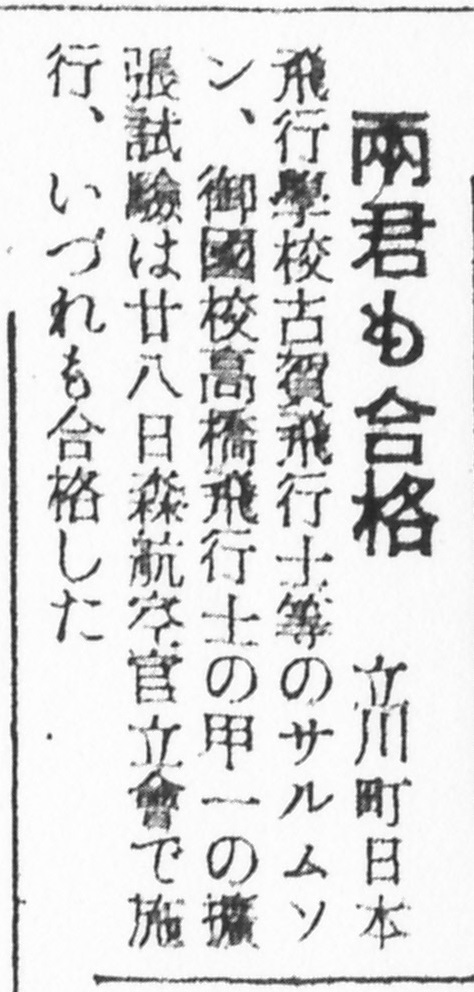 兩君も合格 立川町日本
飛行學校古賀飛行士等のサルムソ
ン、御國校高橋飛行士の甲一の擴
張試驗は廿八日森航空官立會で施
行、いづれも合格した